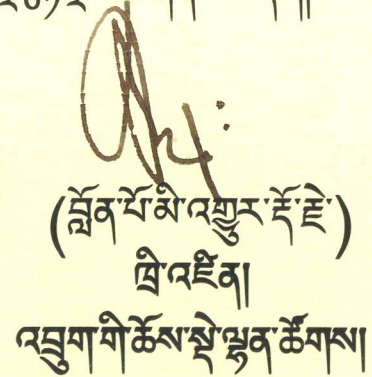 (བློན་པོ་མི་འགྱུར་རྡོ་རྗེ་)
ཁྲི་འཛིན།
འབྲུག་གི་ཆོས་སྡེ་ལྷན་ཚོགས།